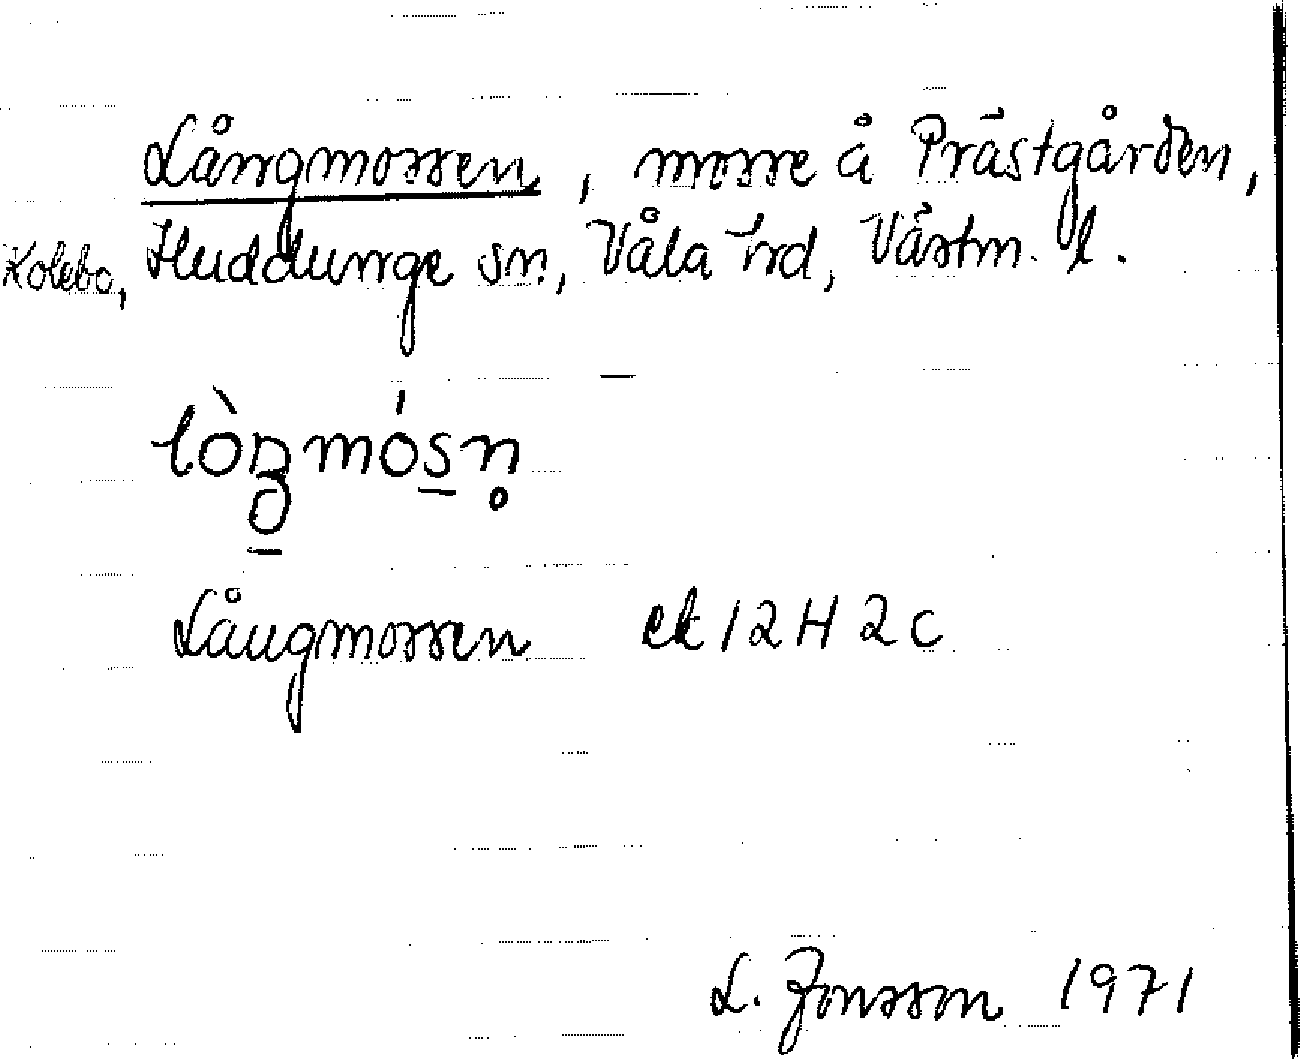 Långmossen, mosse å Prästgården,
Kolebo, Huddunge sn, Våla hd, Västm. l.
lòŋmósn̥
Långmossen ek 12 H 2 c
L. Jonsson 1971